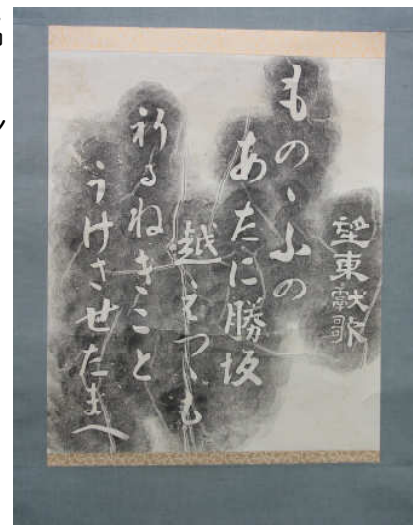 望東献歌
ものゝふの
あたに勝坂
越えつゝも
祈るねきこと
うけさせたまへ